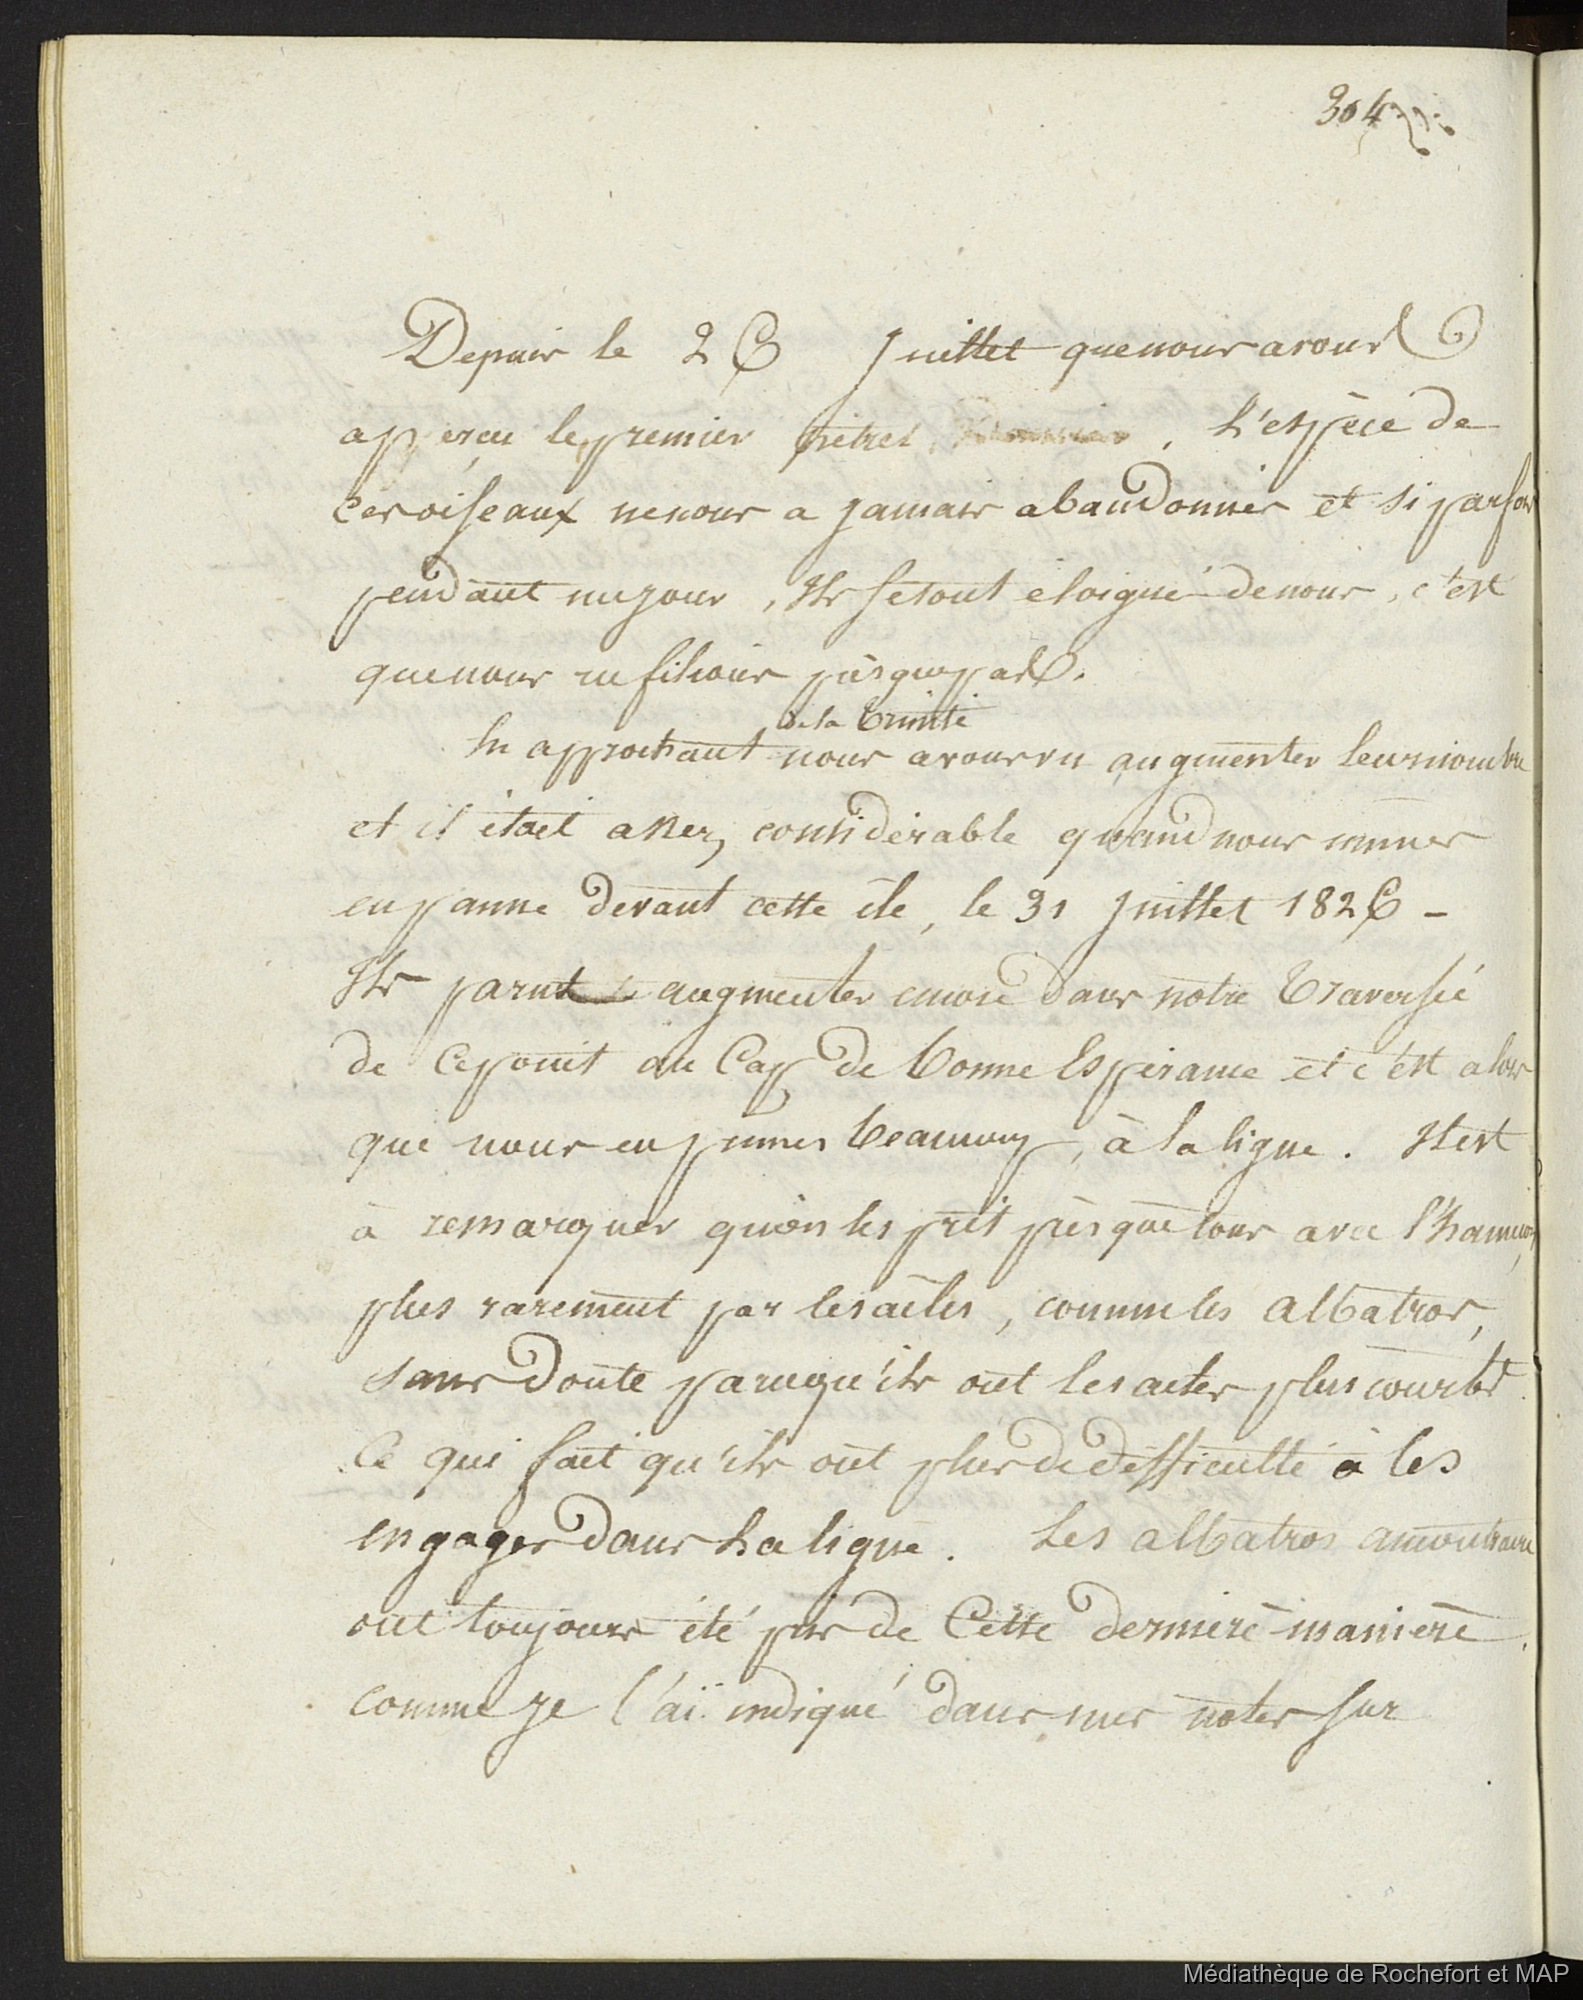 304
Depuis le 26 Juillet que nous avons
apperçu le premier pétrel . L'espèce de
ces oiseaux ne nous a jamais abandonnés et si parfois
pendant un jour, Ils se sont éloigné de nous, c'est
que nous en filions présque pas.
de la Trinité
En approchant nous avons vu augmenter leur nombre
et il était assez considérable quand nous mimes
en panne devant cette île, le 31 Juillet 1826 -
Ils parut augmenter encore dans notre Traversée
de Ce point au Cap de bonne Espérance et c'est alors
que nous en primes beaucoup, à la ligne. Il est
à remarquer qu'on les prit présque tous avec l'hameçon,
plus rarement par les aîles, comme les albatros,
sans doute parcequ'ils ont les aîles plus courtes.
Ce qui fait qu'ils ont plus de difficulté à les
engager dans la ligne. Les albatros au contraire
ont toujours été pris de Cette dernière manière,
comme je l'aï indiqué dans mes notes sur
Médiathèque de Rochefort et MAP